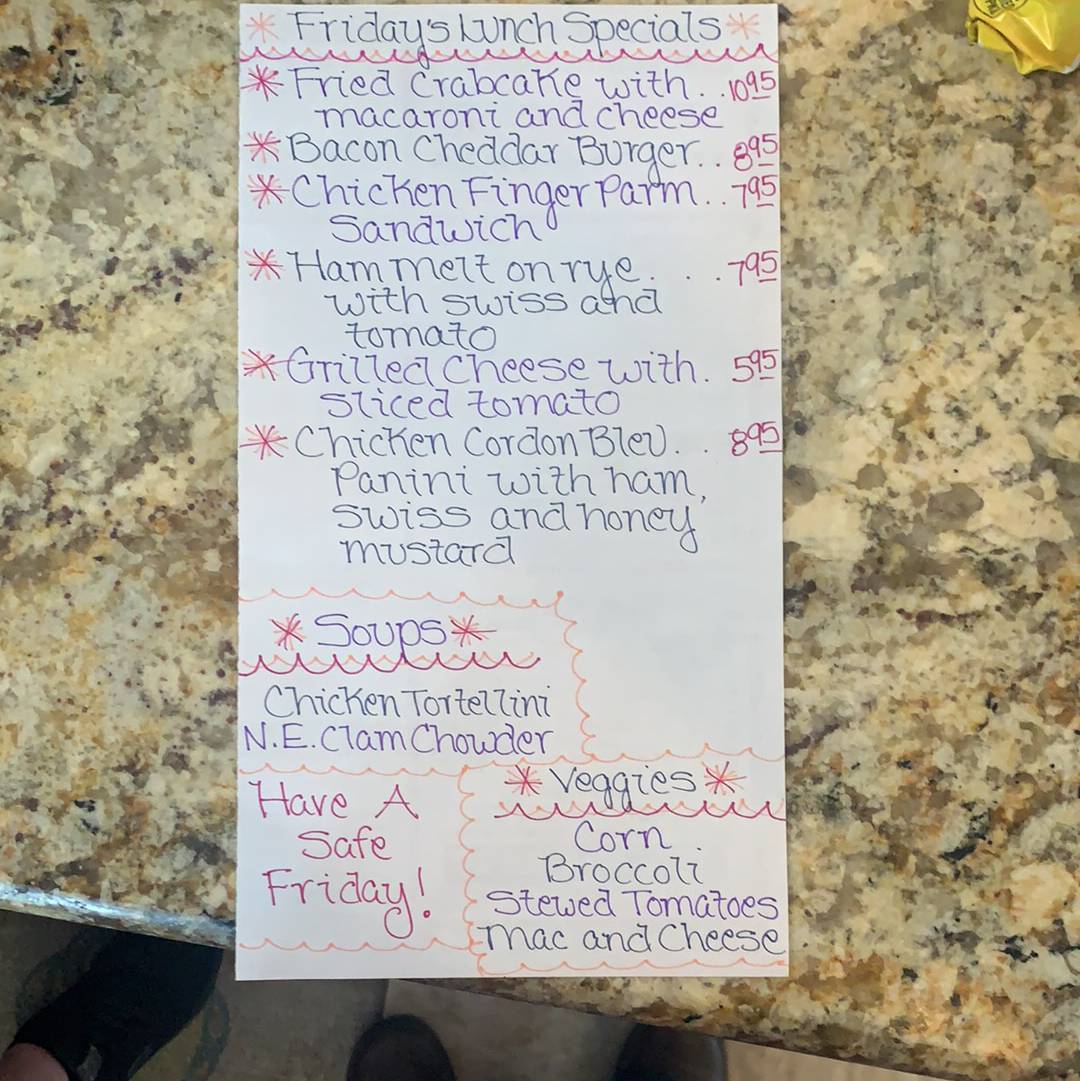 Friday's Lunch Specials
Fried Crabcake with.. 10 95
macaroni and cheese
Bacon Cheddar Burger.. 8 95
Chicken Finger Parm.. 7 95
Sandwich
Ham melt on rye... 7 95
with swiss and
tomato
Grilled Cheese with. 5 95
sliced tomato
Chicken Cordon Bleu.. 8 95
Panini with ham,
swiss and honey
mustard
Soups
Chicken Tortellini
N.E. Clam Chowder
Have A
Safe
Friday!
Veggies
Corn
Broccoli
Stewed Tomatoes
Mac and Cheese